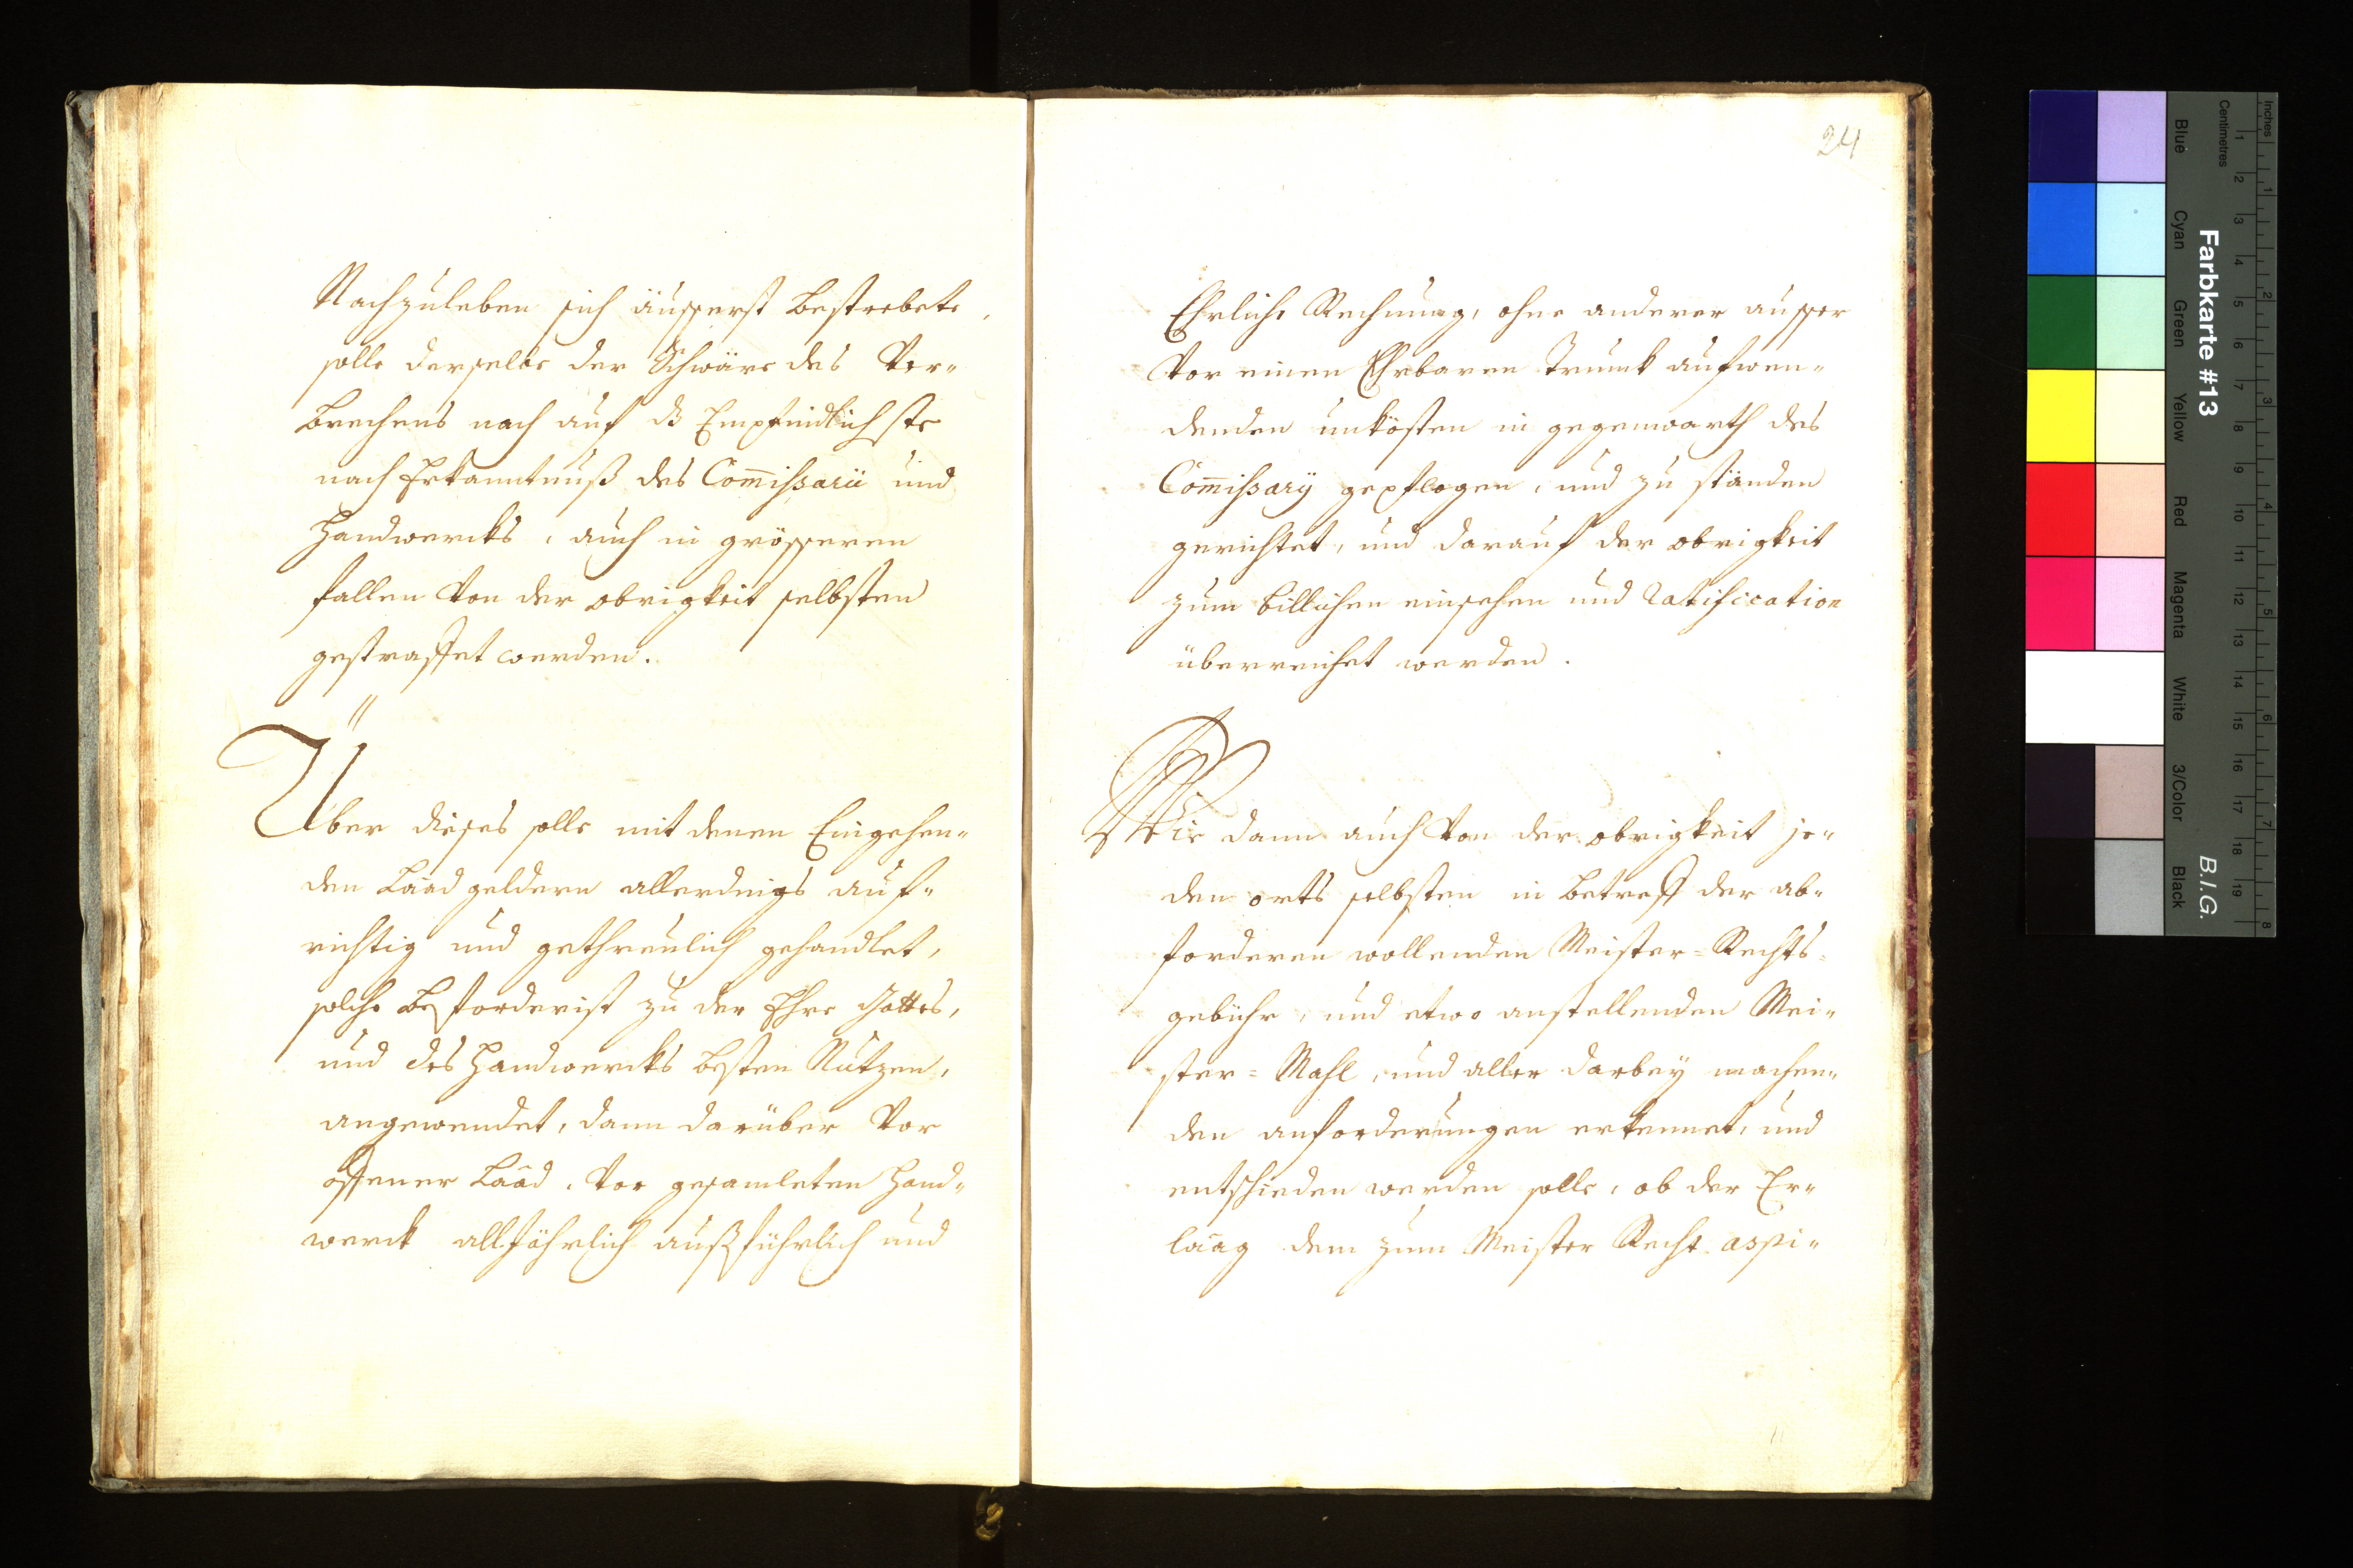 Nachzuleben sich äusserst bestrebete,
solle derselbe der Schwäre des Ver-
brechens nach auf dz Empfindlichste
nach Erkanntnuß des Com̅ißarii und
Handwercks, auch in grösseren
fallen von der obrigkeit selbsten
gestraffet werden.
Über dieses solle mit denen Eingehen-
den Laad geldern allerdings auf-
richtig und gethreulich gehandlet,
solche beforderist zu der Ehre Gottes,
und des Handwercks besten Nutzen,
angewendet, dann darüber vor
offener Laad, vor gesamleten Hand-
werck alljährlich außführlich und
24
Ehrliche Rechnung, ohne anderer ausser
vor einen Ehrbaren Trunck aufwen-
denden unkösten in gegenwarth des
Com̅ißarÿ gepflogen, und zu standen
gerichtet, und darauf der obrigkeit
zum billichen einsehen und ratification
überreichet werden.
Wie dann auch von der obrigkeit je-
den orts selbsten in betreff der ab-
forderen wollenden Meister=Rechts=
gebühr, und etwo anstellenden Mei-
ster=Mahl, und aller darbey machen-
den anforderungen erkennet, und
entschieden werden solle, ob der Er-
laag dem zum Meister Recht aspi-
Farbkarte #13
B.I.G.
Inches
Centimetres
1 2 3 4 5 6 7 8 9 10 11 12 13 14 15 16 17 18 19
1 2 3 4 5 6 7 8
Blue
Cyan
Green
Yellow
Red
Magenta
White
3/Color
Black